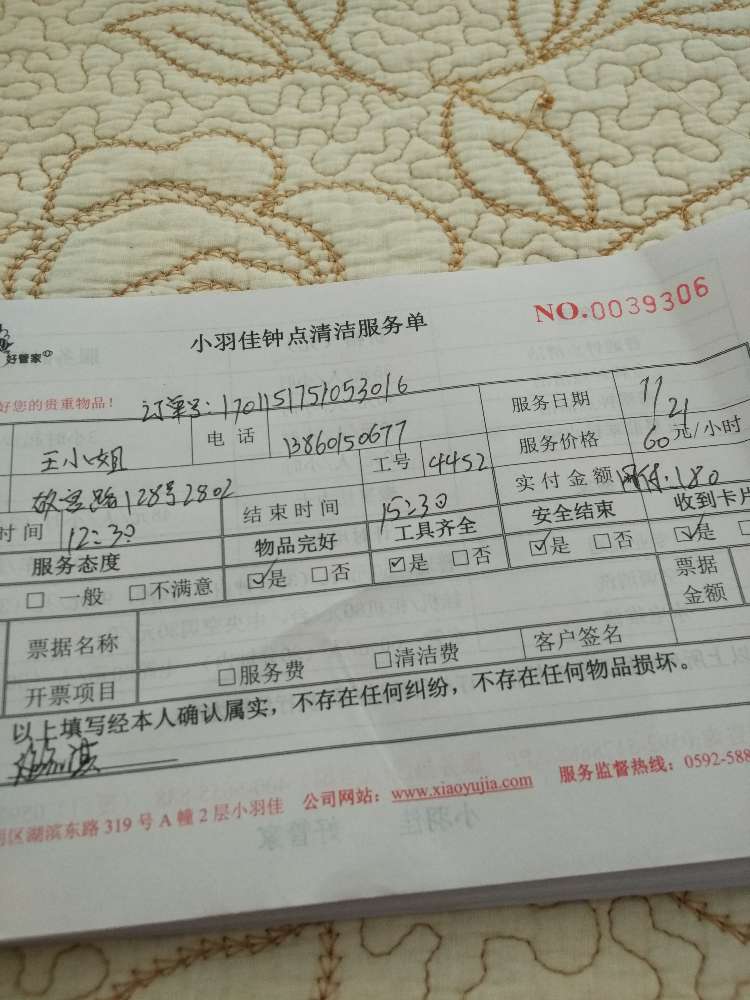 NO.0039306
小羽佳钟点清洁服务单
好管家
好您的贵重物品！ 订单号：1701151751053016
王小姐 电 话 13860150677 服务日期 11/21
128号2802 工号 4452 服务价格 60元/小时
时间 12:30 结束时间 15:30 实付金额 180
服务态度 物品完好 工具齐全 安全结束 收到卡片
□ 一般 □不满意 ☑是 □否 ☑是 □否 ☑是 □否 ☑是
票据名称 票据金额
开票项目 □服务费 □清洁费 客户签名
以上填写经本人确认属实，不存在任何纠纷，不存在任何物品损坏。
区湖滨东路 319 号 A 幢 2 层小羽佳 公司网站：www.xiaoyujia.com 服务监督热线：0592-588